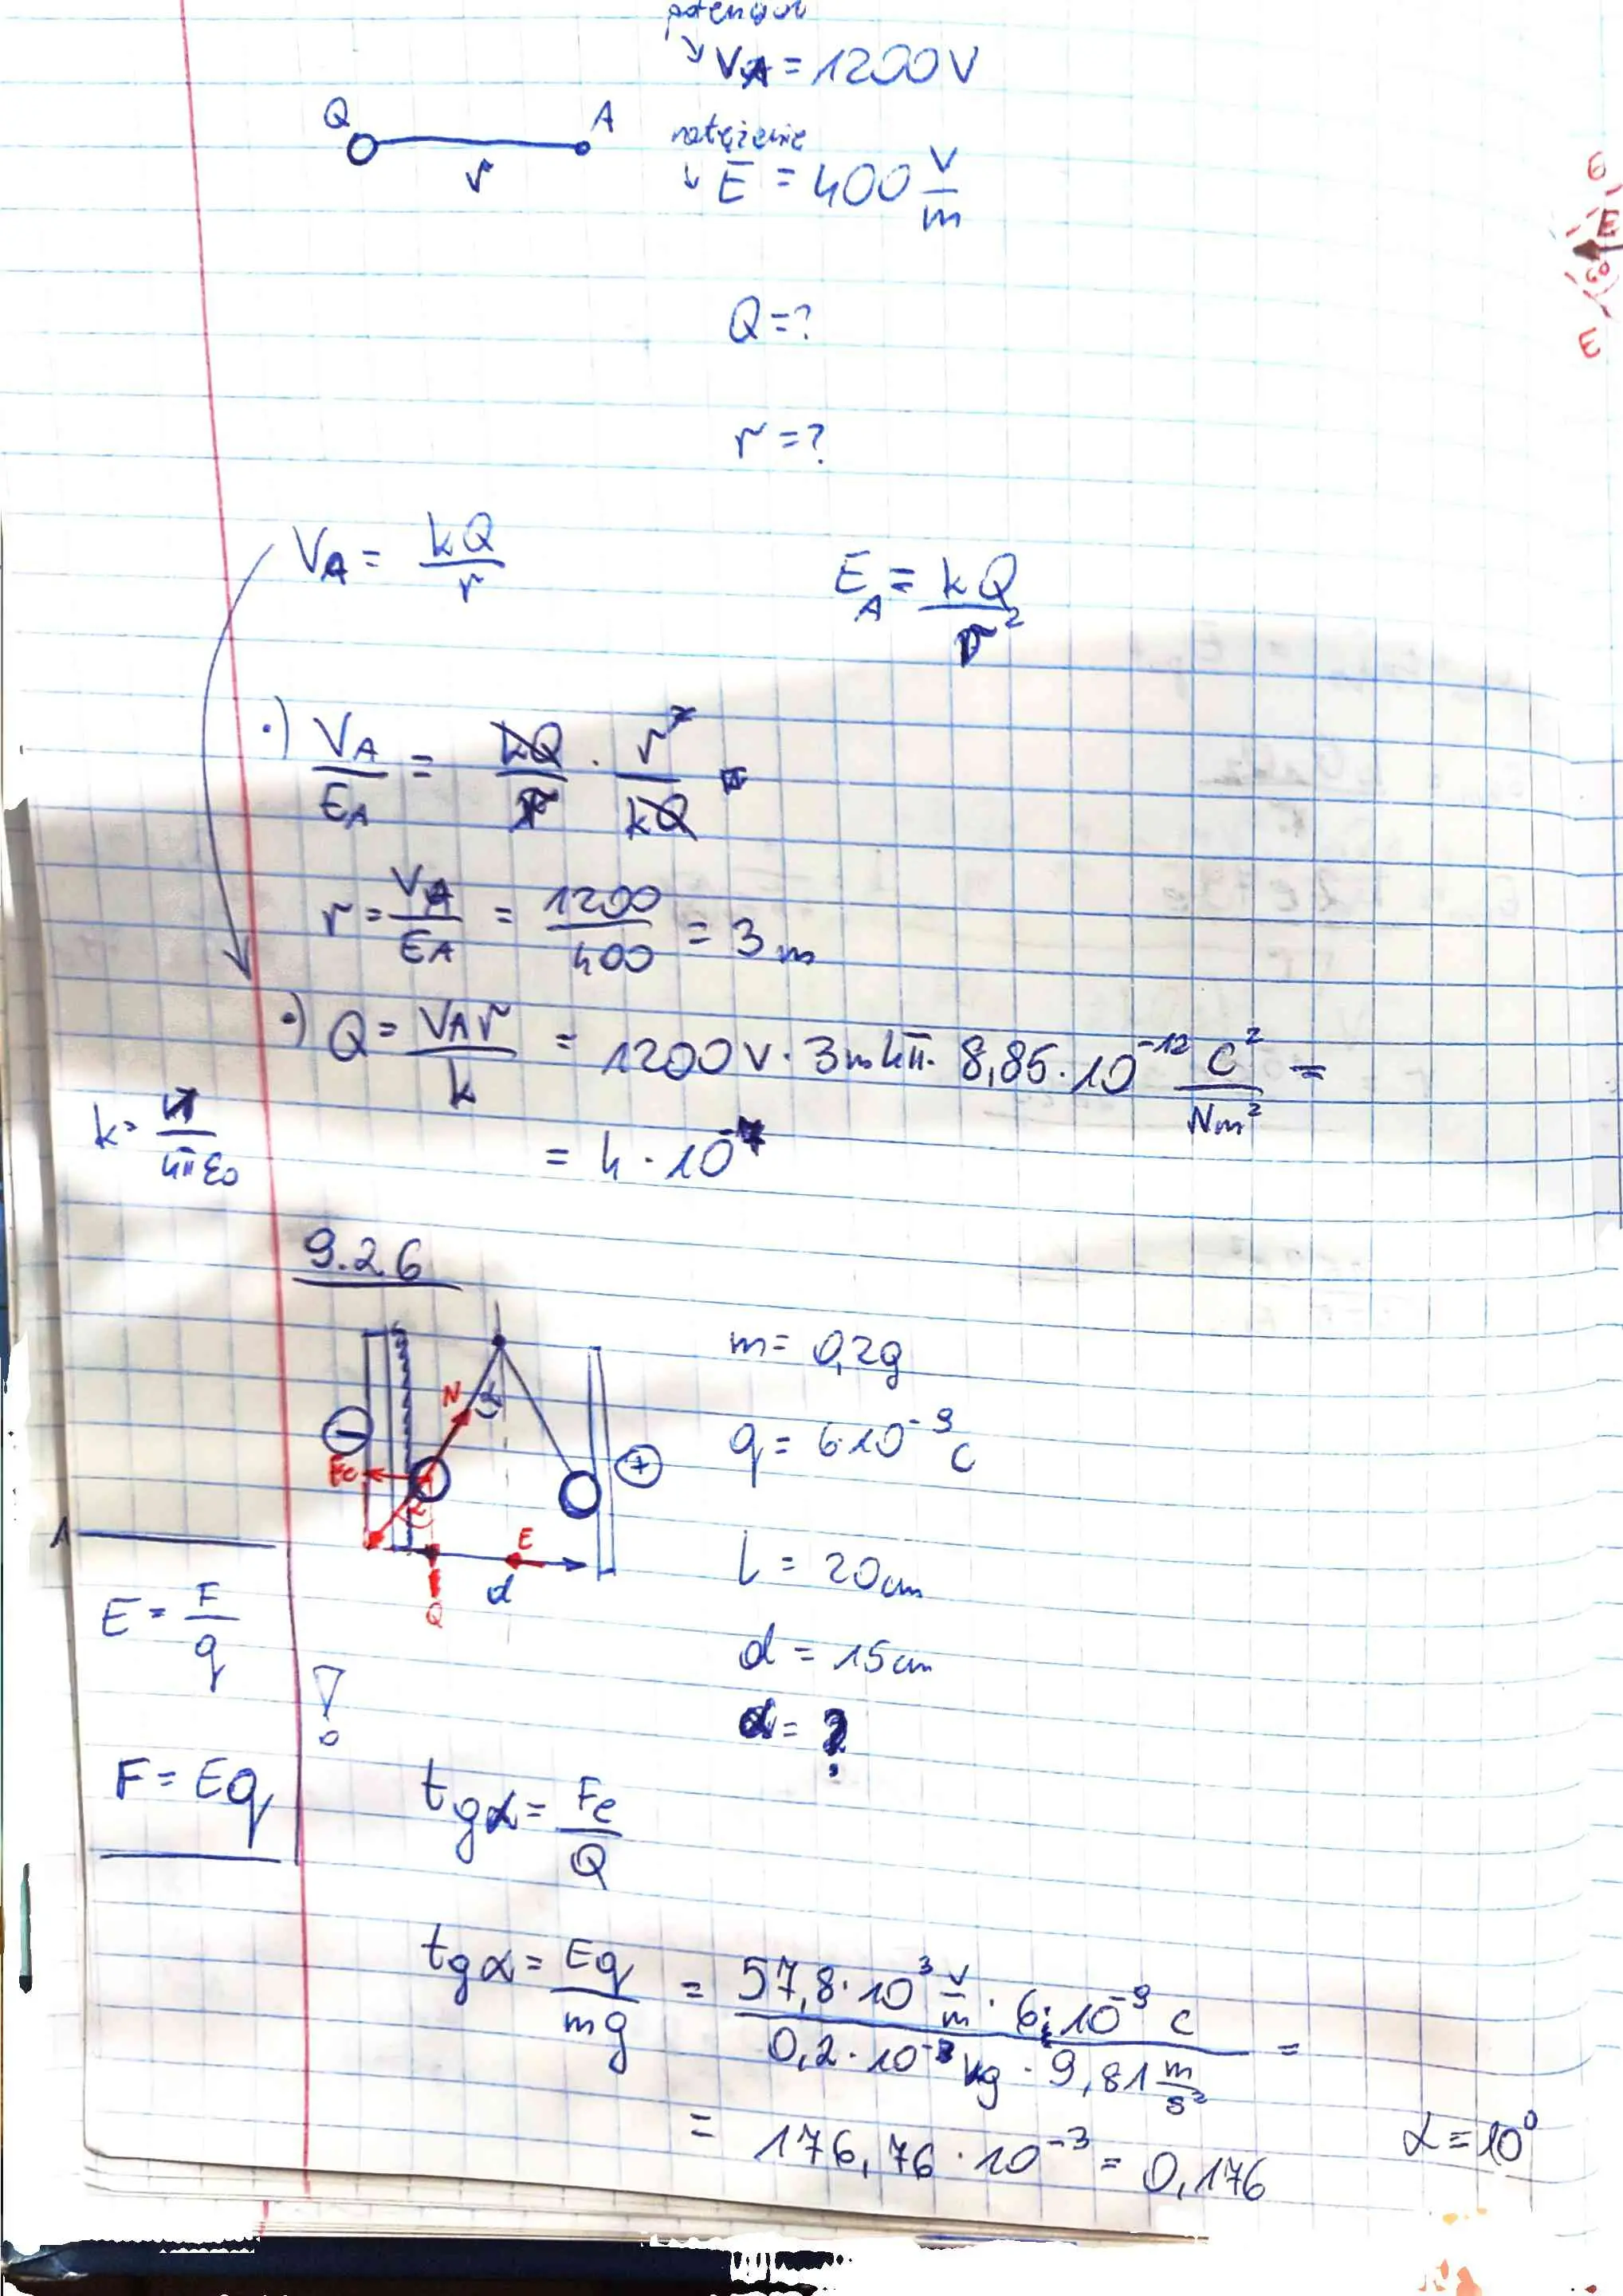 potencjał
↘ VA = 1200V
Q A natężenie
r ↓ E = 400 V/m
Q = ?
r = ?
VA = kQ/r EA = kQ/r²
•) VA/EA = kQ/r · r²/kQ
r = VA/EA = 1200/400 = 3m
•) Q = VAr/k = 1200V · 3m4π · 8,85 · 10⁻¹² C²/Nm² =
k = 1/4πε0 = 4 · 10⁻⁷
9.26
m = 0,2g
N α
q = 6·10⁻⁹ C
− +
Fe
α
E
l = 20cm
d
Q
E = F/q
d = 15cm
α = ?
F = Eq
tgα = Fe/Q
tgα = Eq/mg = 57,8 · 10³ V/m · 6·10⁻⁹ C / 0,2 · 10⁻³ kg · 9,81 m/s² =
= 176,76 · 10⁻³ = 0,176 α = 10°